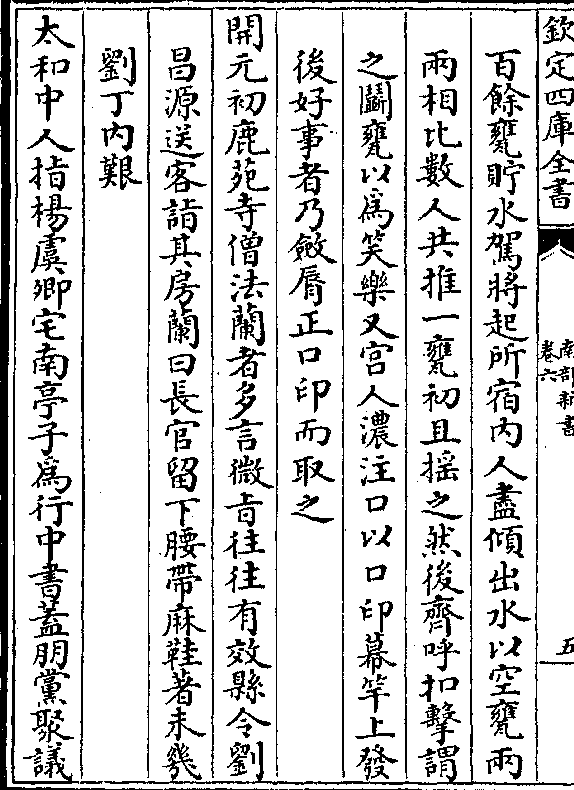 欽定四庫全書
南部新書
卷六
五
百餘甕貯水駕將起所宿内人盡傾出水以空甕兩
兩相比數人共推一甕初且揺之然後齊呼扣擊謂
之鬭甕以為笑樂又宫人濃注口以口印幕竿上發
後好事者乃斂脣正口印而取之
開元初鹿苑寺僧法蘭者多言微㫖往往有效縣令劉
昌源送客詣其房蘭曰長官留下腰帶麻鞋著未幾
劉丁内艱
太和中人指楊虞卿宅南亭子為行中書蓋朋黨聚議